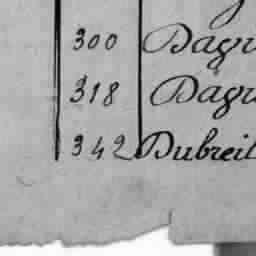 300 Dagu
318 Dagu
342 Dubreil